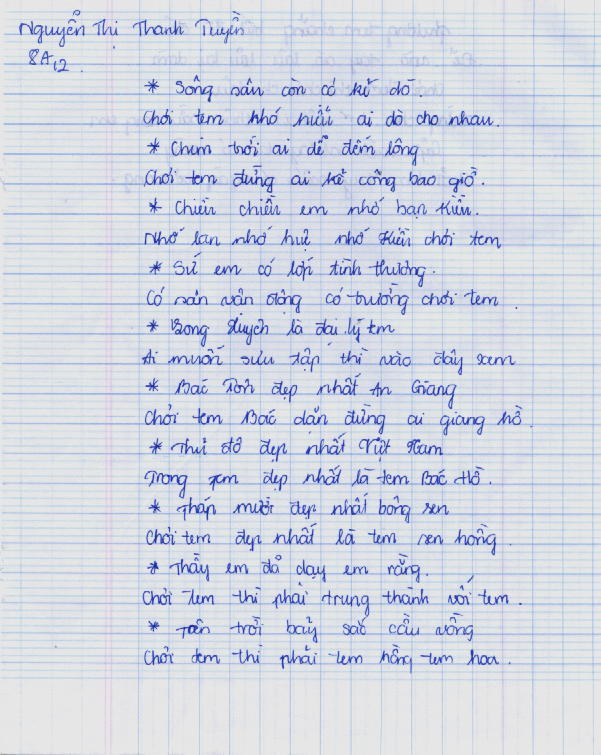 Nguyễn Thị Thanh Tuyền
8A12
* Sông sân còn có kẻ dò
Chơi tem khó kiếm ai dò cho nhau.
* Chim trời ai dể đếm lông
Chơi tem đừng ai kể công bao giờ.
* Chiều chiều em nhớ bạn Kiều.
Nhớ lan nhớ huệ nhớ Kiều chơi tem
* Sứ em có lớp tình thương.
Có sân vân động có trường chơi tem.
* Bong Huỵch là đại lý tem
Ai muốn sưu tập thì vào đây xem
* Bác Tôn đẹp nhất An Giang
Chơi tem Bác dặn đừng ai giang hồ.
* Thủ đô đẹp nhất Việt Nam
Trong tem đẹp nhất là tem Bác Hồ.
* Tháp mười đẹp nhất bông sen
Chơi tem đẹp nhất là tem sen hồng.
* Thầy em đả dạy em rằng.
Chơi tem thì phải trung thành với tem.
* Trên trời bảy sắc cầu vồng
Chơi tem thì phải tem hồng tem hoa.